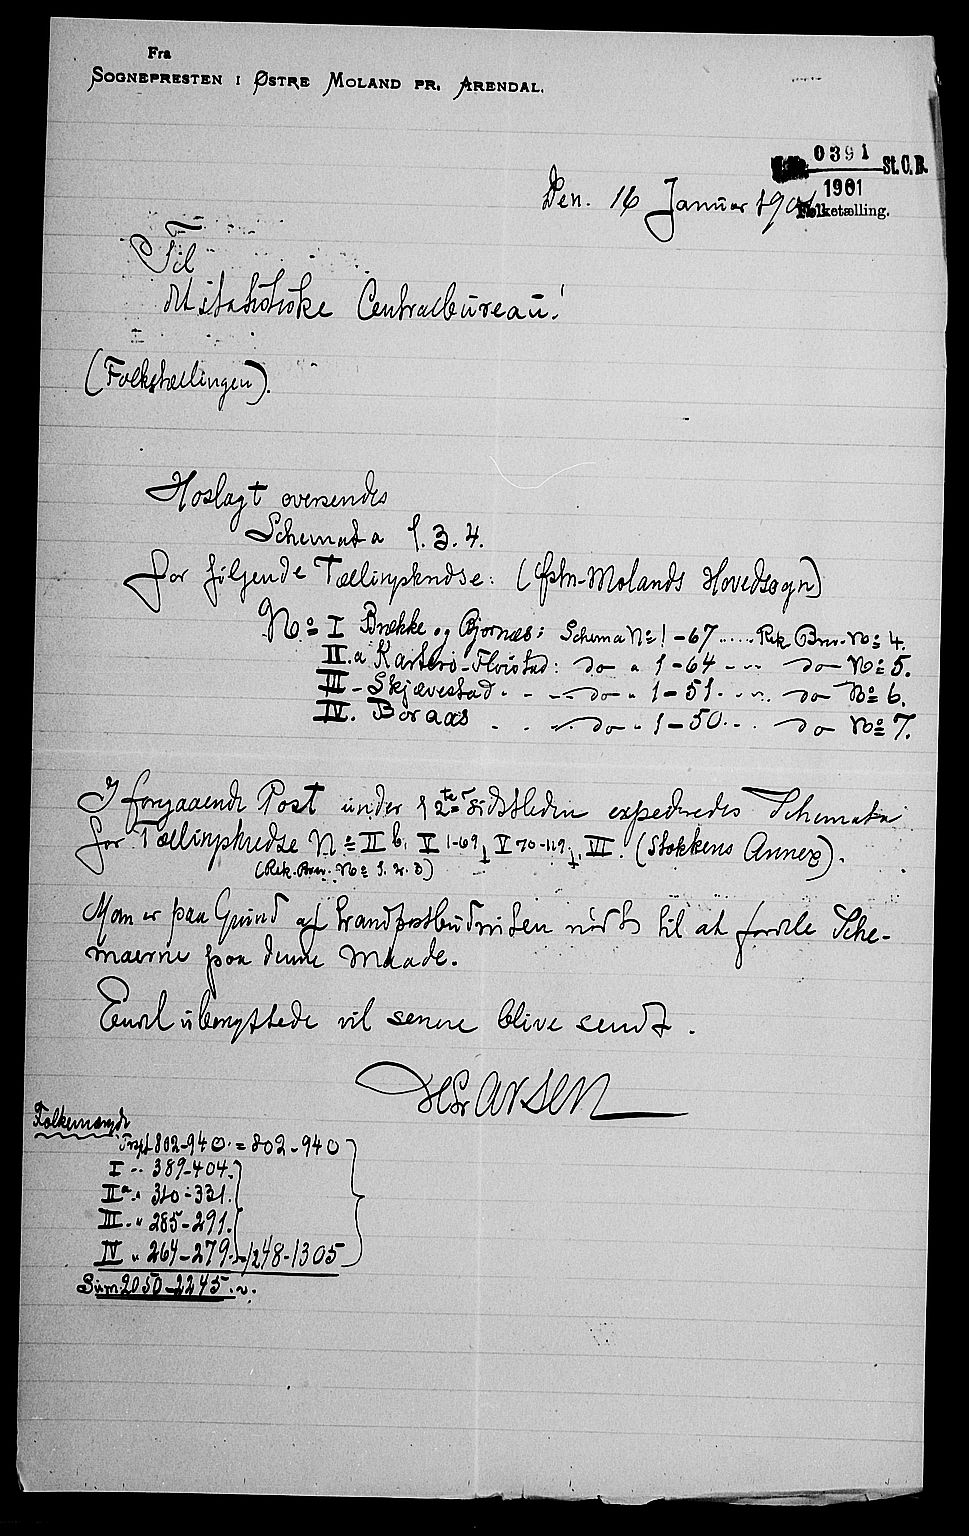 Fra
SOGNEPRESTEN I ØSTRE MOLAND PR. ARENDAL.
0391 St. C. B.
1901
Folketælling.
Den. 16 Januar 1901
Til
det statistiske Centralbureau!
(Folketællingen).
Hoslagt oversendes
Schemata 1. 3. 4.
for følgende Tællingskredse: (Østre-Molands Hovedsogn)
No I Brække og Bjornæs: Schema No 1-67 ..... Rek. Brev. No 4.
II.a Fløistad: do " 1-64 - - - do No 5.
III - Skjævestad - - - do " 1-51. - - - do No 6.
IV. Boraas - - - do " 1-50. - - do No 7.
I forgaaende Post under 12te sidstleden expederedes Schemata
for Tællingskredse No II b, V 1-69, V 70-119, VI. (Stokkens Annex).
(Rek. Brev. No 1. 2. 3)
Man er paa Grund af Landpostbudruten nødt til at fordele Sche-
maerne paa denne Maade.
ubenyttede vil senere blive sendt.
Folkemængde
802-940. = 802-940
I " 389-404.
IIa " 310-331.
III. " 285-291.
IV " 264-279. 1248-1305
Sum 2050-2245.